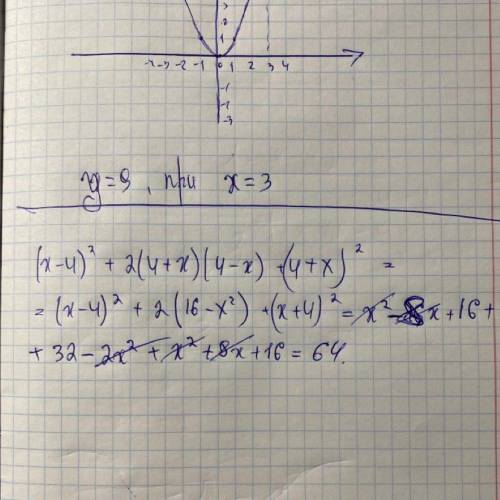 3
2
1
-4 -3 -2 -1 0 1 2 3 4
-1
-2
-3
y=9, при x=3
(x-4)² + 2(4+x)(4-x) + (4+x)² =
= (x-4)² + 2(16-x²) + (x+4)² = x² - 8x + 16 +
+ 32 - 2x² + x² + 8x + 16 = 64.